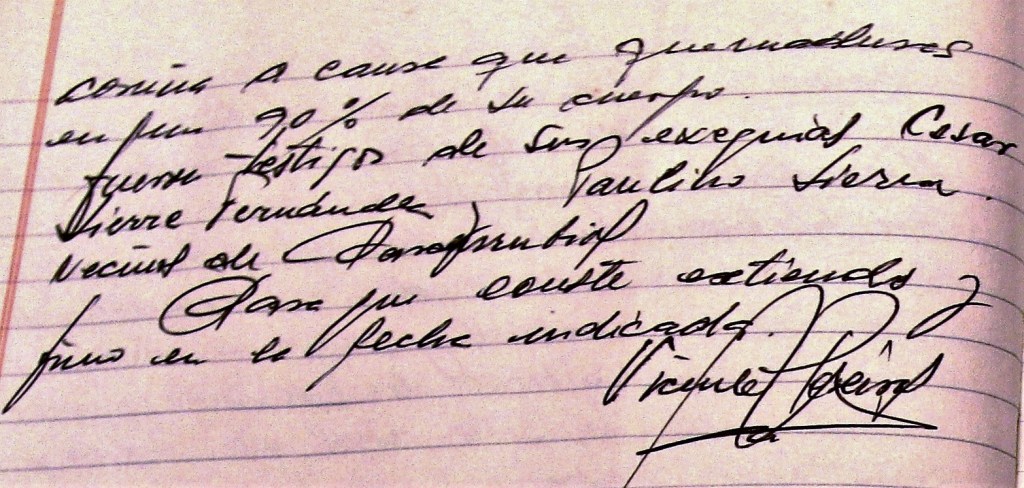 a causa que quemaduras
en un 90% de su cuerpo.
Fueron testigos de sus exequias Cesar
Sierra Fernández y Paulino Sierra
vecinos de
Para que conste extiendo y
firmo en la fecha indicada.
Vicente